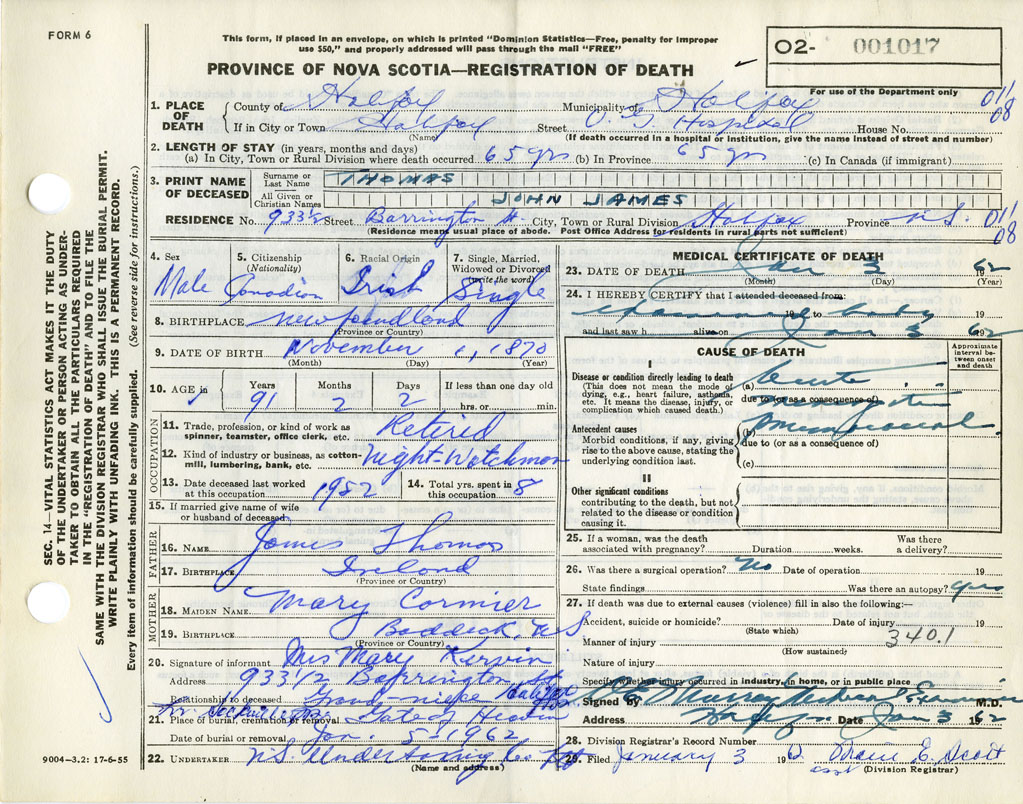 FORM 6
This form, if placed in an envelope, on which is printed "Dominion Statistics—Free, penalty for improper
use $50," and properly addressed will pass through the mail "FREE"
PROVINCE OF NOVA SCOTIA—REGISTRATION OF DEATH
O2- 001017
For use of the Department only
SEC. 14—VITAL STATISTICS ACT MAKES IT THE DUTY
OF THE UNDERTAKER OR PERSON ACTING AS UNDER-
TAKER TO OBTAIN ALL THE PARTICULARS REQUIRED
IN THE "REGISTRATION OF DEATH" AND TO FILE THE
SAME WITH THE DIVISION REGISTRAR WHO SHALL ISSUE THE BURIAL PERMIT.
WRITE PLAINLY WITH UNFADING INK. THIS IS A PERMANENT RECORD.
Every item of information should be carefully supplied. (See reverse side for instructions.)
1. PLACE OF DEATH County of Halifax Municipality of Halifax 011/08
If in City or Town Halifax Street Hospital House No.
(Name) (If death occurred in a hospital or institution, give the name instead of street and number)
2. LENGTH OF STAY (in years, months and days)
(a) In City, Town or Rural Division where death occurred 65 yrs (b) In Province 65 yrs (c) In Canada (if immigrant)
3. PRINT NAME OF DECEASED Surname or Last Name THOMAS
All Given or Christian Names JOHN JAMES
RESIDENCE No. 933½ Street Barrington St. City, Town or Rural Division Halifax Province N.S. 011/08
(Residence means usual place of abode. Post Office Address for residents in rural parts not sufficient)
4. Sex 5. Citizenship (Nationality) 6. Racial Origin 7. Single, Married, Widowed or Divorced (write the word)
Male Canadian Irish Single
8. BIRTHPLACE Newfoundland
(Province or Country)
9. DATE OF BIRTH November 1, 1870
(Month) (Day) (Year)
10. AGE in Years Months Days If less than one day old
91 2 2 hrs. or min.
OCCUPATION
11. Trade, profession, or kind of work as spinner, teamster, office clerk, etc. Retired
12. Kind of industry or business, as cotton-mill, lumbering, bank, etc. Night-Watchman
13. Date deceased last worked at this occupation 1952 14. Total yrs. spent in this occupation 8
15. If married give name of wife or husband of deceased
FATHER
16. NAME James Thomas
17. BIRTHPLACE Ireland
(Province or Country)
MOTHER
18. MAIDEN NAME Mary Cormier
19. BIRTHPLACE Baddeck, N.S
(Province or Country)
20. Signature of informant Mrs Mary Kervin
Address 933 1/2 Barrington St.
Relationship to deceased Grand niece Halifax
21. Place of burial, cremation or removal Gate of Heaven
Date of burial or removal Jan. 5 1962
22. UNDERTAKER N.S. Undertaking Co.
(Name and address)
9004—3.2: 17-6-55
MEDICAL CERTIFICATE OF DEATH
23. DATE OF DEATH Jan 3 1962
(Month) (Day) (Year)
24. I HEREBY CERTIFY that I attended deceased from:
examined 19 to body 19
and last saw h alive on Jan 3 1962
CAUSE OF DEATH Approximate interval between onset and death
I
Disease or condition directly leading to death
(This does not mean the mode of dying, e.g., heart failure, asthenia, etc. It means the disease, injury, or complication which caused death.)
(a) Acute
due to (or as a consequence of)
Antecedent causes
Morbid conditions, if any, giving rise to the above cause, stating the underlying condition last.
(b)
due to (or as a consequence of)
(c)
II
Other significant conditions
contributing to the death, but not related to the disease or condition causing it.
25. If a woman, was the death associated with pregnancy? Duration weeks. Was there a delivery?
26. Was there a surgical operation? No Date of operation 19
State findings Was there an autopsy? yes
27. If death was due to external causes (violence) fill in also the following:—
Accident, suicide or homicide? Date of injury 19
(State which) 340.1
Manner of injury
(How sustained)
Nature of injury
Specify whether injury occurred in industry, in home, or in public place
Signed by Murray Medical Examiner M.D.
Address Halifax Date Jan 3 1962
28. Division Registrar's Record Number
29. Filed January 3 1962 E. Scott
asst (Division Registrar)